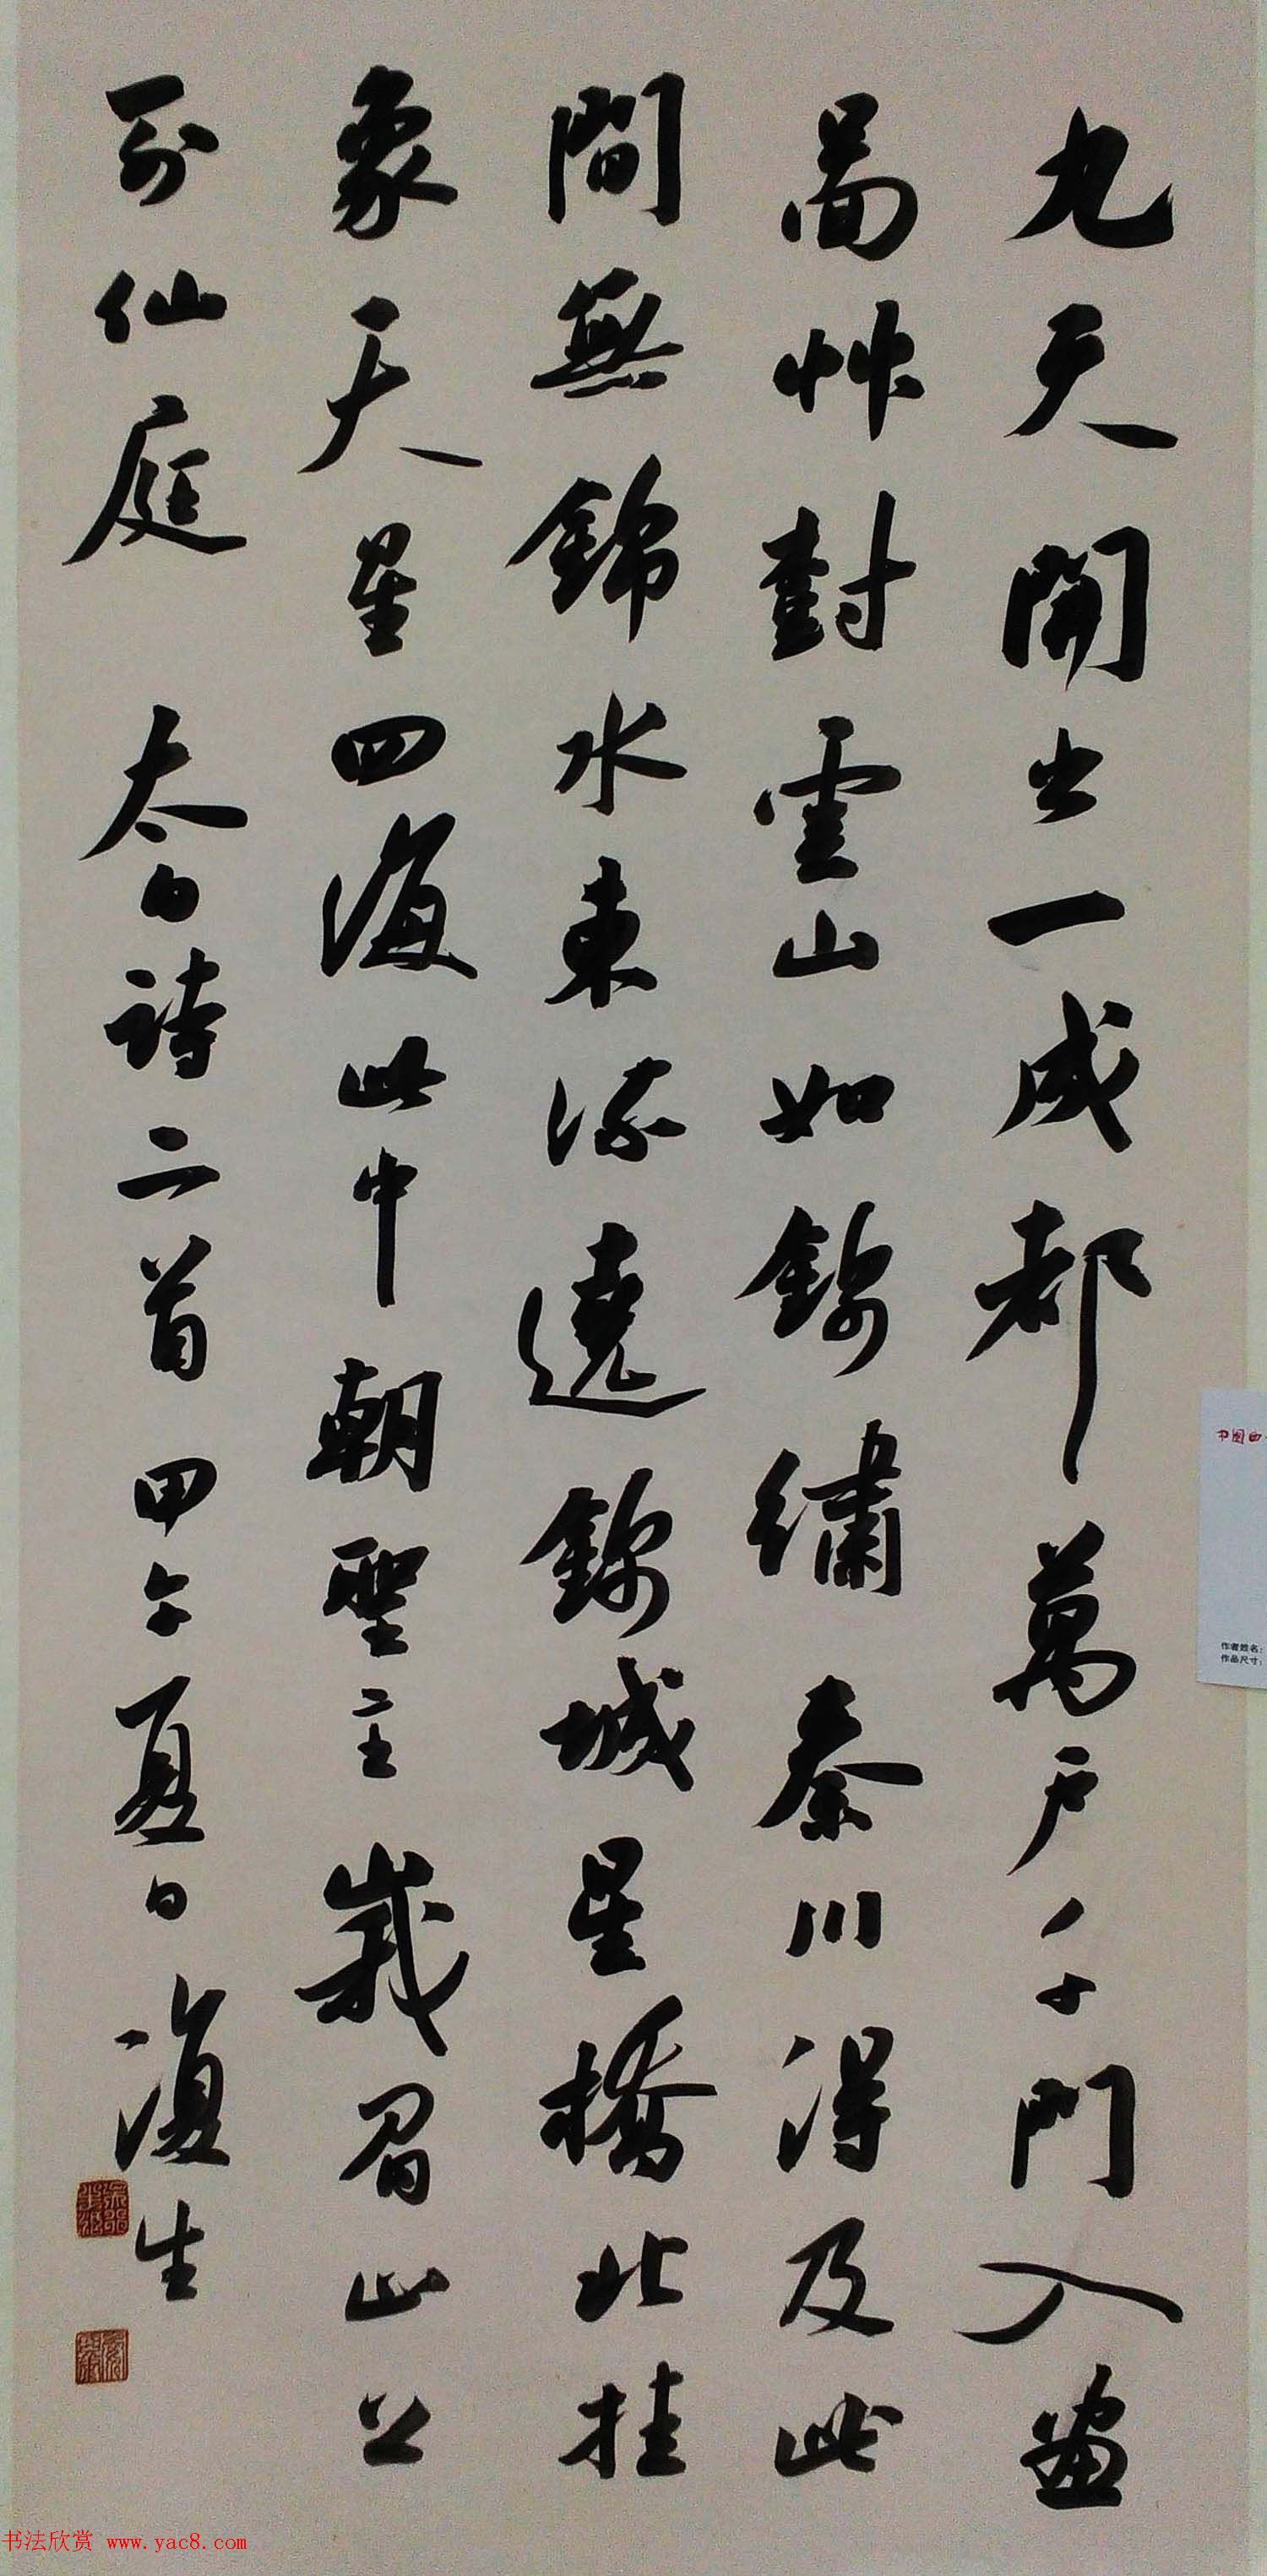 九天開出一成都萬戶千門入畫
啚艸尌雲山如錦繡秦川得及此
間無錦水東流遶錦城星橋北挂
象天星四海此中朝聖主峩眉山上
列仙庭 太白詩二首 甲午夏日復生
中国
作者姓名:
作品尺寸:
书法欣赏 www.yac8.com